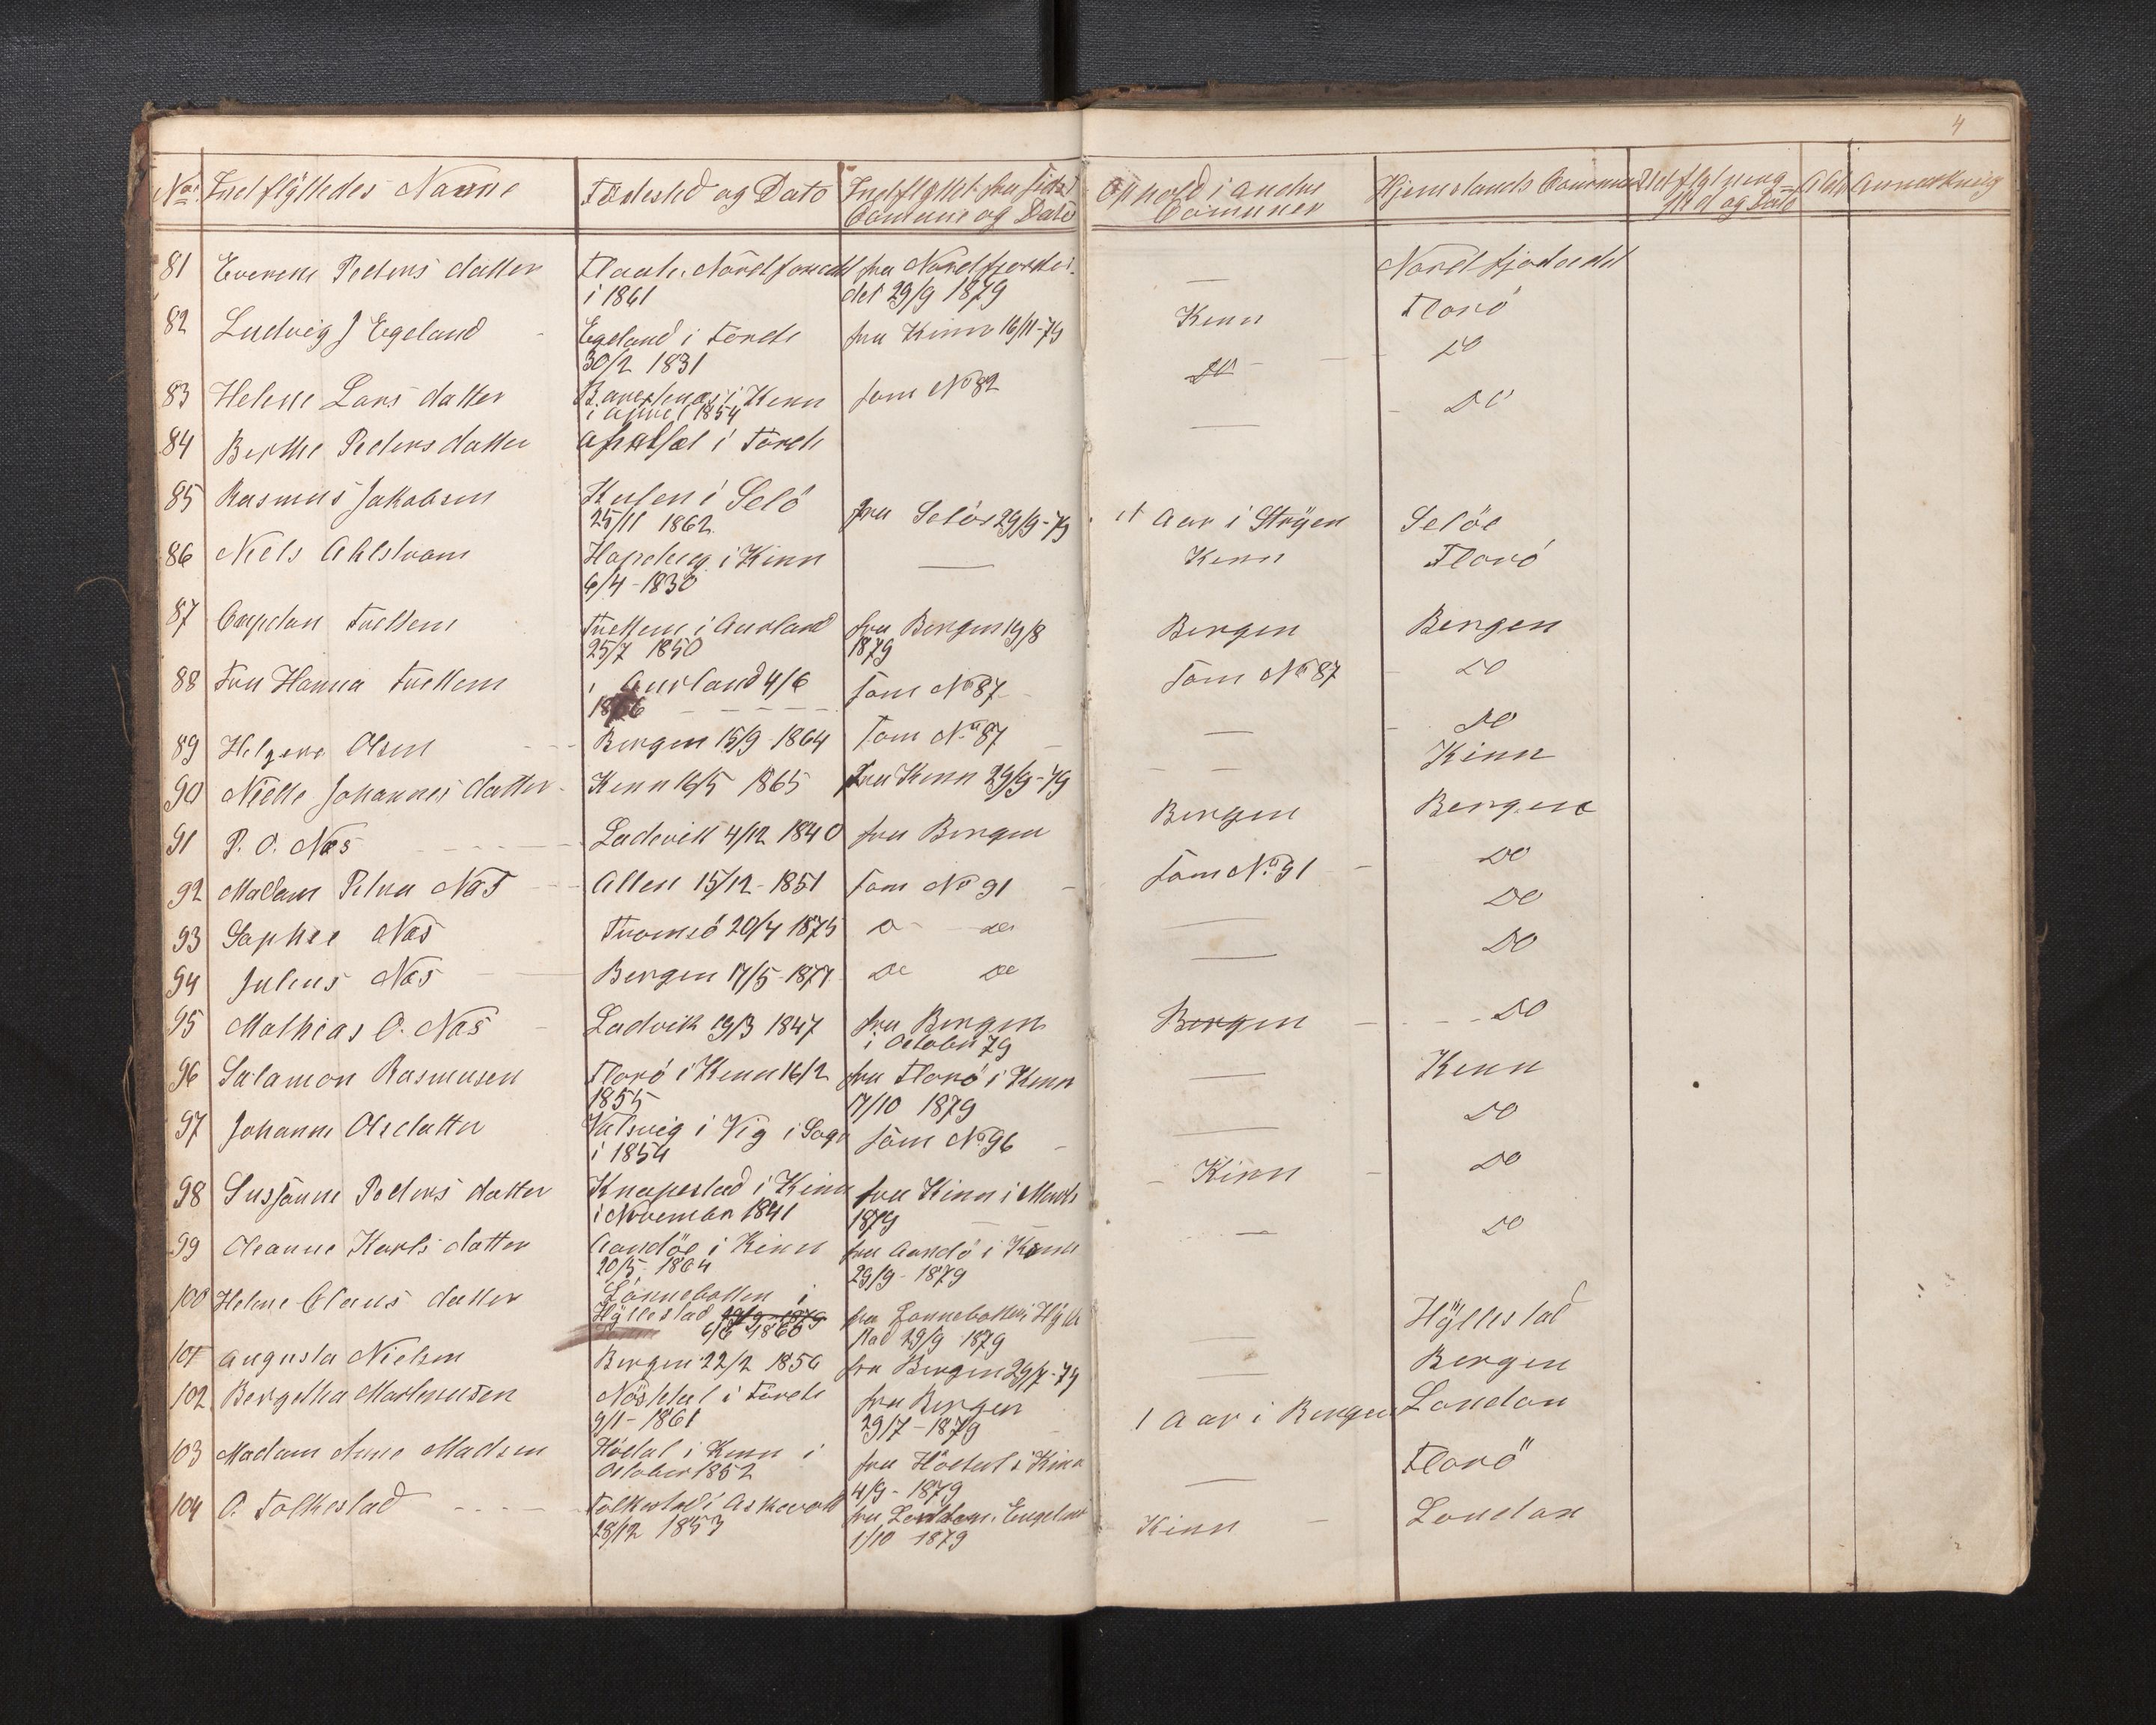 4
No. Indflyttedes Navne Födested og Dato Indflyttet fra sidst Ophold i andre Hjemslands Commune Udflytning Alder Anmærkning
Commune og Dato Communer Sted og Dato
81 Everine Peders datter i Nordfjoreidet fra Nordfjordei- — Nordfjordeidet
i 1861 det 29/9 1879
82 Ludvig J Egeland - Egeland i Förde fra Kinn 16/11-79 Kinn Florö
30/2 1831
83 Helene Lars datter i Kinn som No 82 Do - Do
i April 1854
84 Berthe Peders datter i Förde — Do
85 Rasmus Jakobsen i Selö fra Selöe 29/9-79 Aar i Stryen Selöe
25/11 1862
86 Niels Ahlstrom i Kinn — Kinn Florö
6/4-1830
87 Capdan Frettem Frettem i Aurland fra Bergen 19/8 Bergen Bergen
25/7 1850 1879
88 Fru Hanna Frettem i Aurland 4/6 som No 87 som No 87 Do
89 Helgine Olsen Bergen 15/9-1864 som No 87 — Do
90 Johannes datter Kinn 16/5 1865 fra Kinn 29/9-79 — Kinn
91 P. O. Næs Ladevik 4/12 1840 fra Bergen Bergen Bergen
92 Madam Petra Næs Alten 15/12-1851 som No 91 som No 91 Do
93 Sophie Næs Tromsö 20/4 1875 Do Do — Do
94 Julius Næs Bergen 17/5-1877 Do Do — Do
95 Mathias O. Næs Ladvik 19/3 1847 fra Bergen Bergen Do
i October 79
96 Salamon Rasmusen Florö i Kinn 16/2 fra Florö i Kinn — Kinn
1855 17/10 1879
97 Johanne Olsdatter i Vig i Sogn som No 96 — Do
i 1854
98 Susanne Peders datter Knapestad i Kinn fra Kinn i Marts Kinn Do
i November 1841 1879
99 Oleanne Karls datter Aandöe i Kinn fra Aandö i Kinn — Do
20/5-1864 29/9-1879
100 Helene Claus datter Lönnebotten i
Hyllestad 29/9 1879 fra Lonnebotten i Hylle — Hyllestad
6/6 1860 stad 29/9 1879
101 Augusta Nielsen Bergen 22/2 1856 fra Bergen 29/7-79 — Bergen
102 Bergetha Martinusen i Förde fra Bergen 1 Aar i Bergen London
9/1-1861 29/7-1879
103 Madam Anne Madsen Hödal i Kinn i fra i Kinn — Florö
October 1852 4/9-1879
104 O. Folkestad Folkestad i Askevold fra London i England Kinn London
28/12 1853 1/10 1879